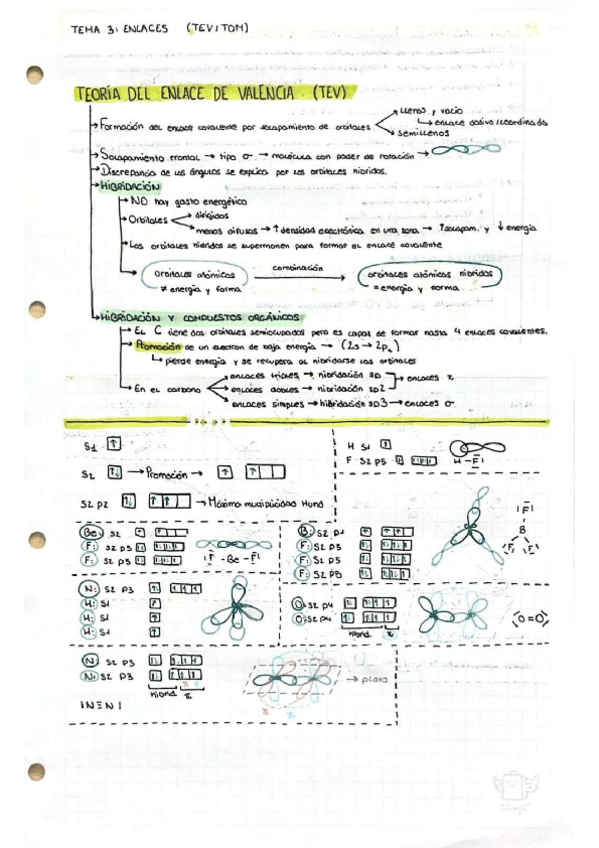 TEMA 3: ENLACES (TEV/TOM)
TEORÍA DEL ENLACE DE VALENCIA (TEV)
→ Formación del enlace covalente por solapamiento de orbitales
lleno y vacio
↳ enlace dativo/coordinado
semillenos
→ Solapamiento frontal → tipo σ → molécula con poder de rotación →
→ Discrepancia de los ángulos se explica por los orbitales híbridos.
→ HIBRIDACIÓN
→ NO hay gasto energético
→ Orbitales
dirigidos
menos difusos → ↑ densidad electrónica en una zona → ↑ solapam. y ↓ energía
→ Los orbitales híbridos se superponen para formar el enlace covalente
orbitales atómicos
≠ energía y forma
combinación
orbitales atómicos híbridos
= energía y forma
→ HIBRIDACIÓN Y COMPUESTOS ORGÁNICOS
→ El C tiene dos orbitales semiocupados pero es capaz de formar hasta 4 enlaces covalentes.
→ Promoción de un electron de baja energía → (2s → 2p
↳ pierde energía y se recupera al hibridarse los orbitales
→ En el carbono
enlaces triples → hibridación sp
enlaces dobles → hibridación sp2
enlaces π
enlaces simples → hibridación sp3 → enlaces σ
S1
S2 → Promoción →
S2 p2 → Máxima multiplicidad Hund
H S1
F S2 p5 H - F
Be: S2
F: S2 p5
F: S2 p5
F - Be - F
B: S2 p1
F: S2 p5
F: S2 p5
F: S2 p5
F
B
F F
N: S2 p3
H: S1
H: S1
H: S1
O: S2 p4
O: S2 p4
hibrid. π
O = O
N S2 p3
N: S2 p3
hibrid π
I N ≡ N I
π π
→ plano